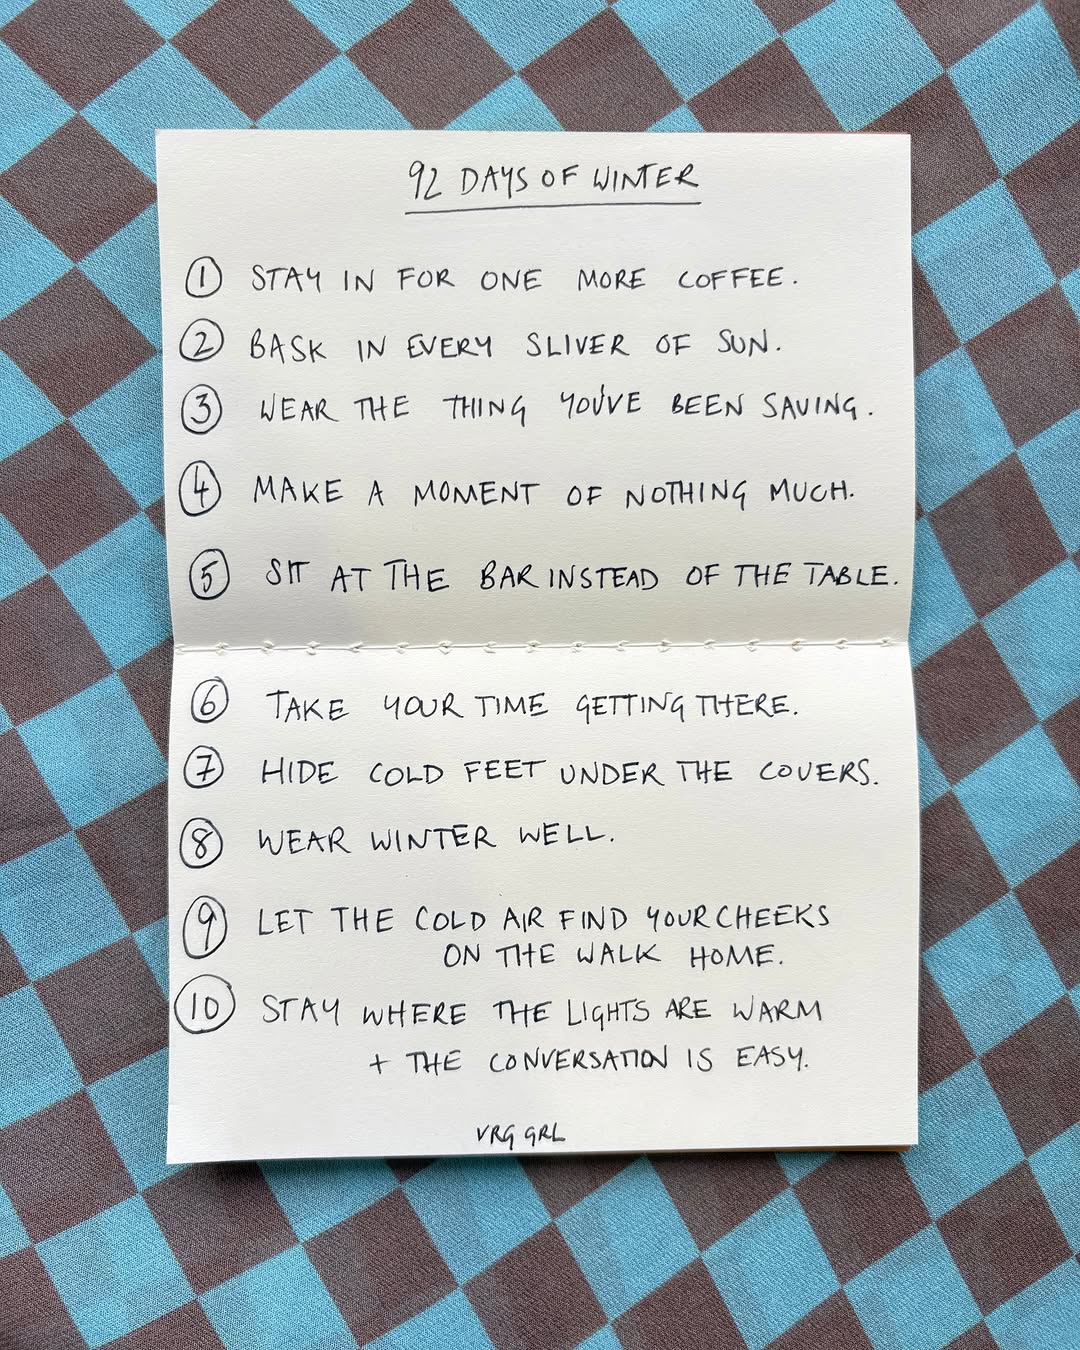 92 DAYS OF WINTER
1 STAY IN FOR ONE MORE COFFEE.
2 BASK IN EVERY SLIVER OF SUN.
3 WEAR THE THING YOU'VE BEEN SAVING.
4 MAKE A MOMENT OF NOTHING MUCH.
5 SIT AT THE BAR INSTEAD OF THE TABLE.
6 TAKE YOUR TIME GETTING THERE.
7 HIDE COLD FEET UNDER THE COVERS.
8 WEAR WINTER WELL.
9 LET THE COLD AIR FIND YOUR CHEEKS
ON THE WALK HOME.
10 STAY WHERE THE LIGHTS ARE WARM
+ THE CONVERSATION IS EASY.
VRG GRL